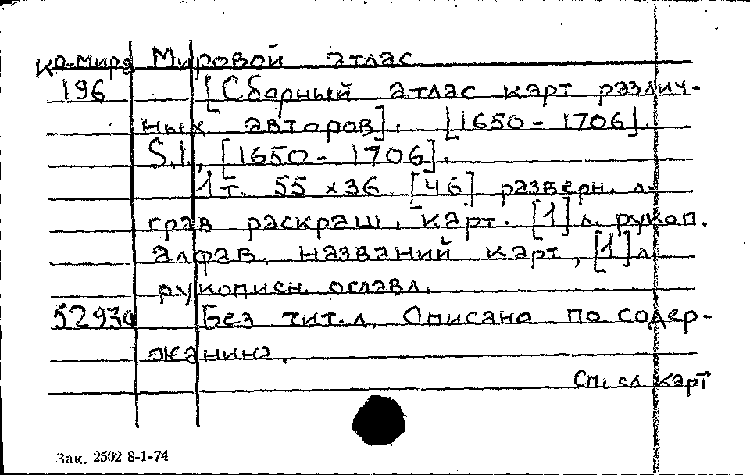 ко.мира Мировой атлас
196 [Сборный атлас карт различ-
ных авторов]. [1650-1706].
S.l., [1650-1706].
1 т. 55 x 36 [46] разверн. л.
грав. раскраш. карт. [1] л. рукоп.
алфав. названий карт, [1] л.
рукописн. оглавл.
Без тит. л. Описано по содер-
жанию.
См. сл. карт
Зак. 2502 8-1-74